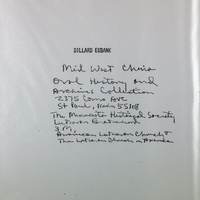 DILLARD EUBANK
Mid West China
Oral History and
Archives Collection
2375 Como Ave
St Paul, Minn 55108
The Minnesota Historical Society
Lutheran
3M,
American Lutheran Church &
The Lutheran Church in America